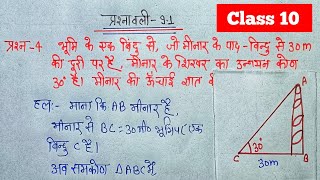 प्रश्नावली-9.1
Class 10
प्रश्न-4 भूमि के एक बिंदु से, जो मीनार के पाद-बिन्दु से 30m
की दूरी पर है, मीनार के शिखर का उन्नयन कोण
30° है। मीनार की ऊँचाई ज्ञात
हलः- माना कि AB मीनार है,
मीनार से BC = 30मी० भूमि पर एक
बिन्दु C है।
अब समकोण △ABC में
A
30°
C
30m
B